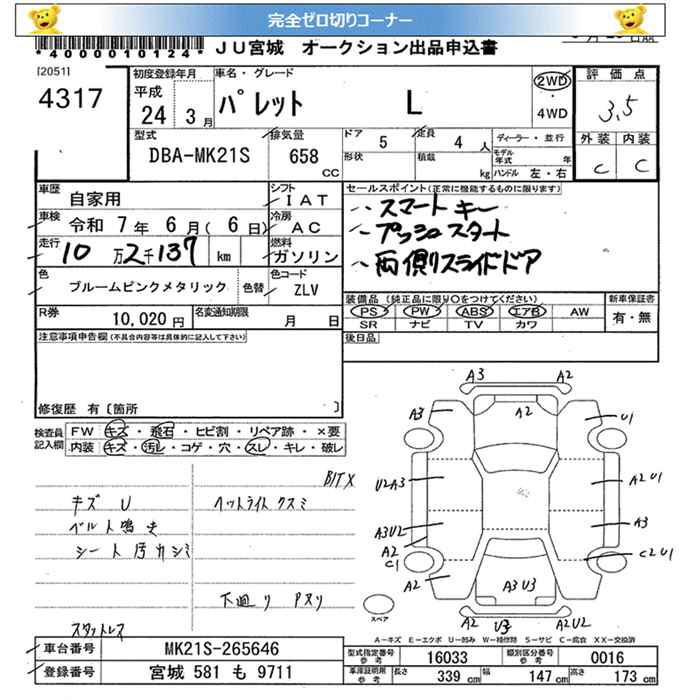 完全ゼロ切りコーナー
*4000010124* JU宮城 オークション出品申込書
[2051]
4317
初度登録年月 平成 24年 3月
車名・グレード パレット L
2WD・4WD
評価点 3,5
外装 C 内装 C
型式 DBA-MK21S
排気量 658 CC
ドア 5 定員 4 人
形状 積載 kg
ディーラー・並行
モデル年式 年
ハンドル 左・右
車歴 自家用
シフト IAT
車検 令和 7年 6月( 6日)
冷房 AC
走行 10万2千137 km
燃料 ガソリン
色 ブルームピンクメタリック 色替
色コード ZLV
R券 10,020円
名変通知期限 月 日
セールスポイント(正常に機能するものに限ります)
スマートキー
プッシュスタート
両側スライドドア
装備品(純正品に限り○をつけてください)
PS PW ABS エアB AW
SR ナビ TV カワ
新車保証書 有・無
後日品
注意事項申告欄(不具合内容等は具体的に記入して下さい)
修復歴 有〔箇所 〕
検査員記入欄
FW キズ・飛石・ヒビ割・リペア跡・×要
内装 キズ・汚レ・コゲ・穴・スレ・キレ・破レ
キズ U
ベルト鳴き
シート汚カシミ
スタットレス
ヘットライトクスミ
下廻り Pヌリ
A3 A2
A3 A2 U1
U2A3 A2U1
A3U2 A3
A2 C1 C2U1
A2 A3U3 A2
A2 U3 A2U2
スペア
A−キズ E−エクボ U−凹み W−補修跡 S−サビ C−腐食 XX−交換済
車台番号 MK21S-265646
登録番号 宮城 581 も 9711
型式指定番号 参考 16033
類別区分番号 参考 0016
車庫証明用 参考 長さ 339 cm 幅 147 cm 高さ 173 cm